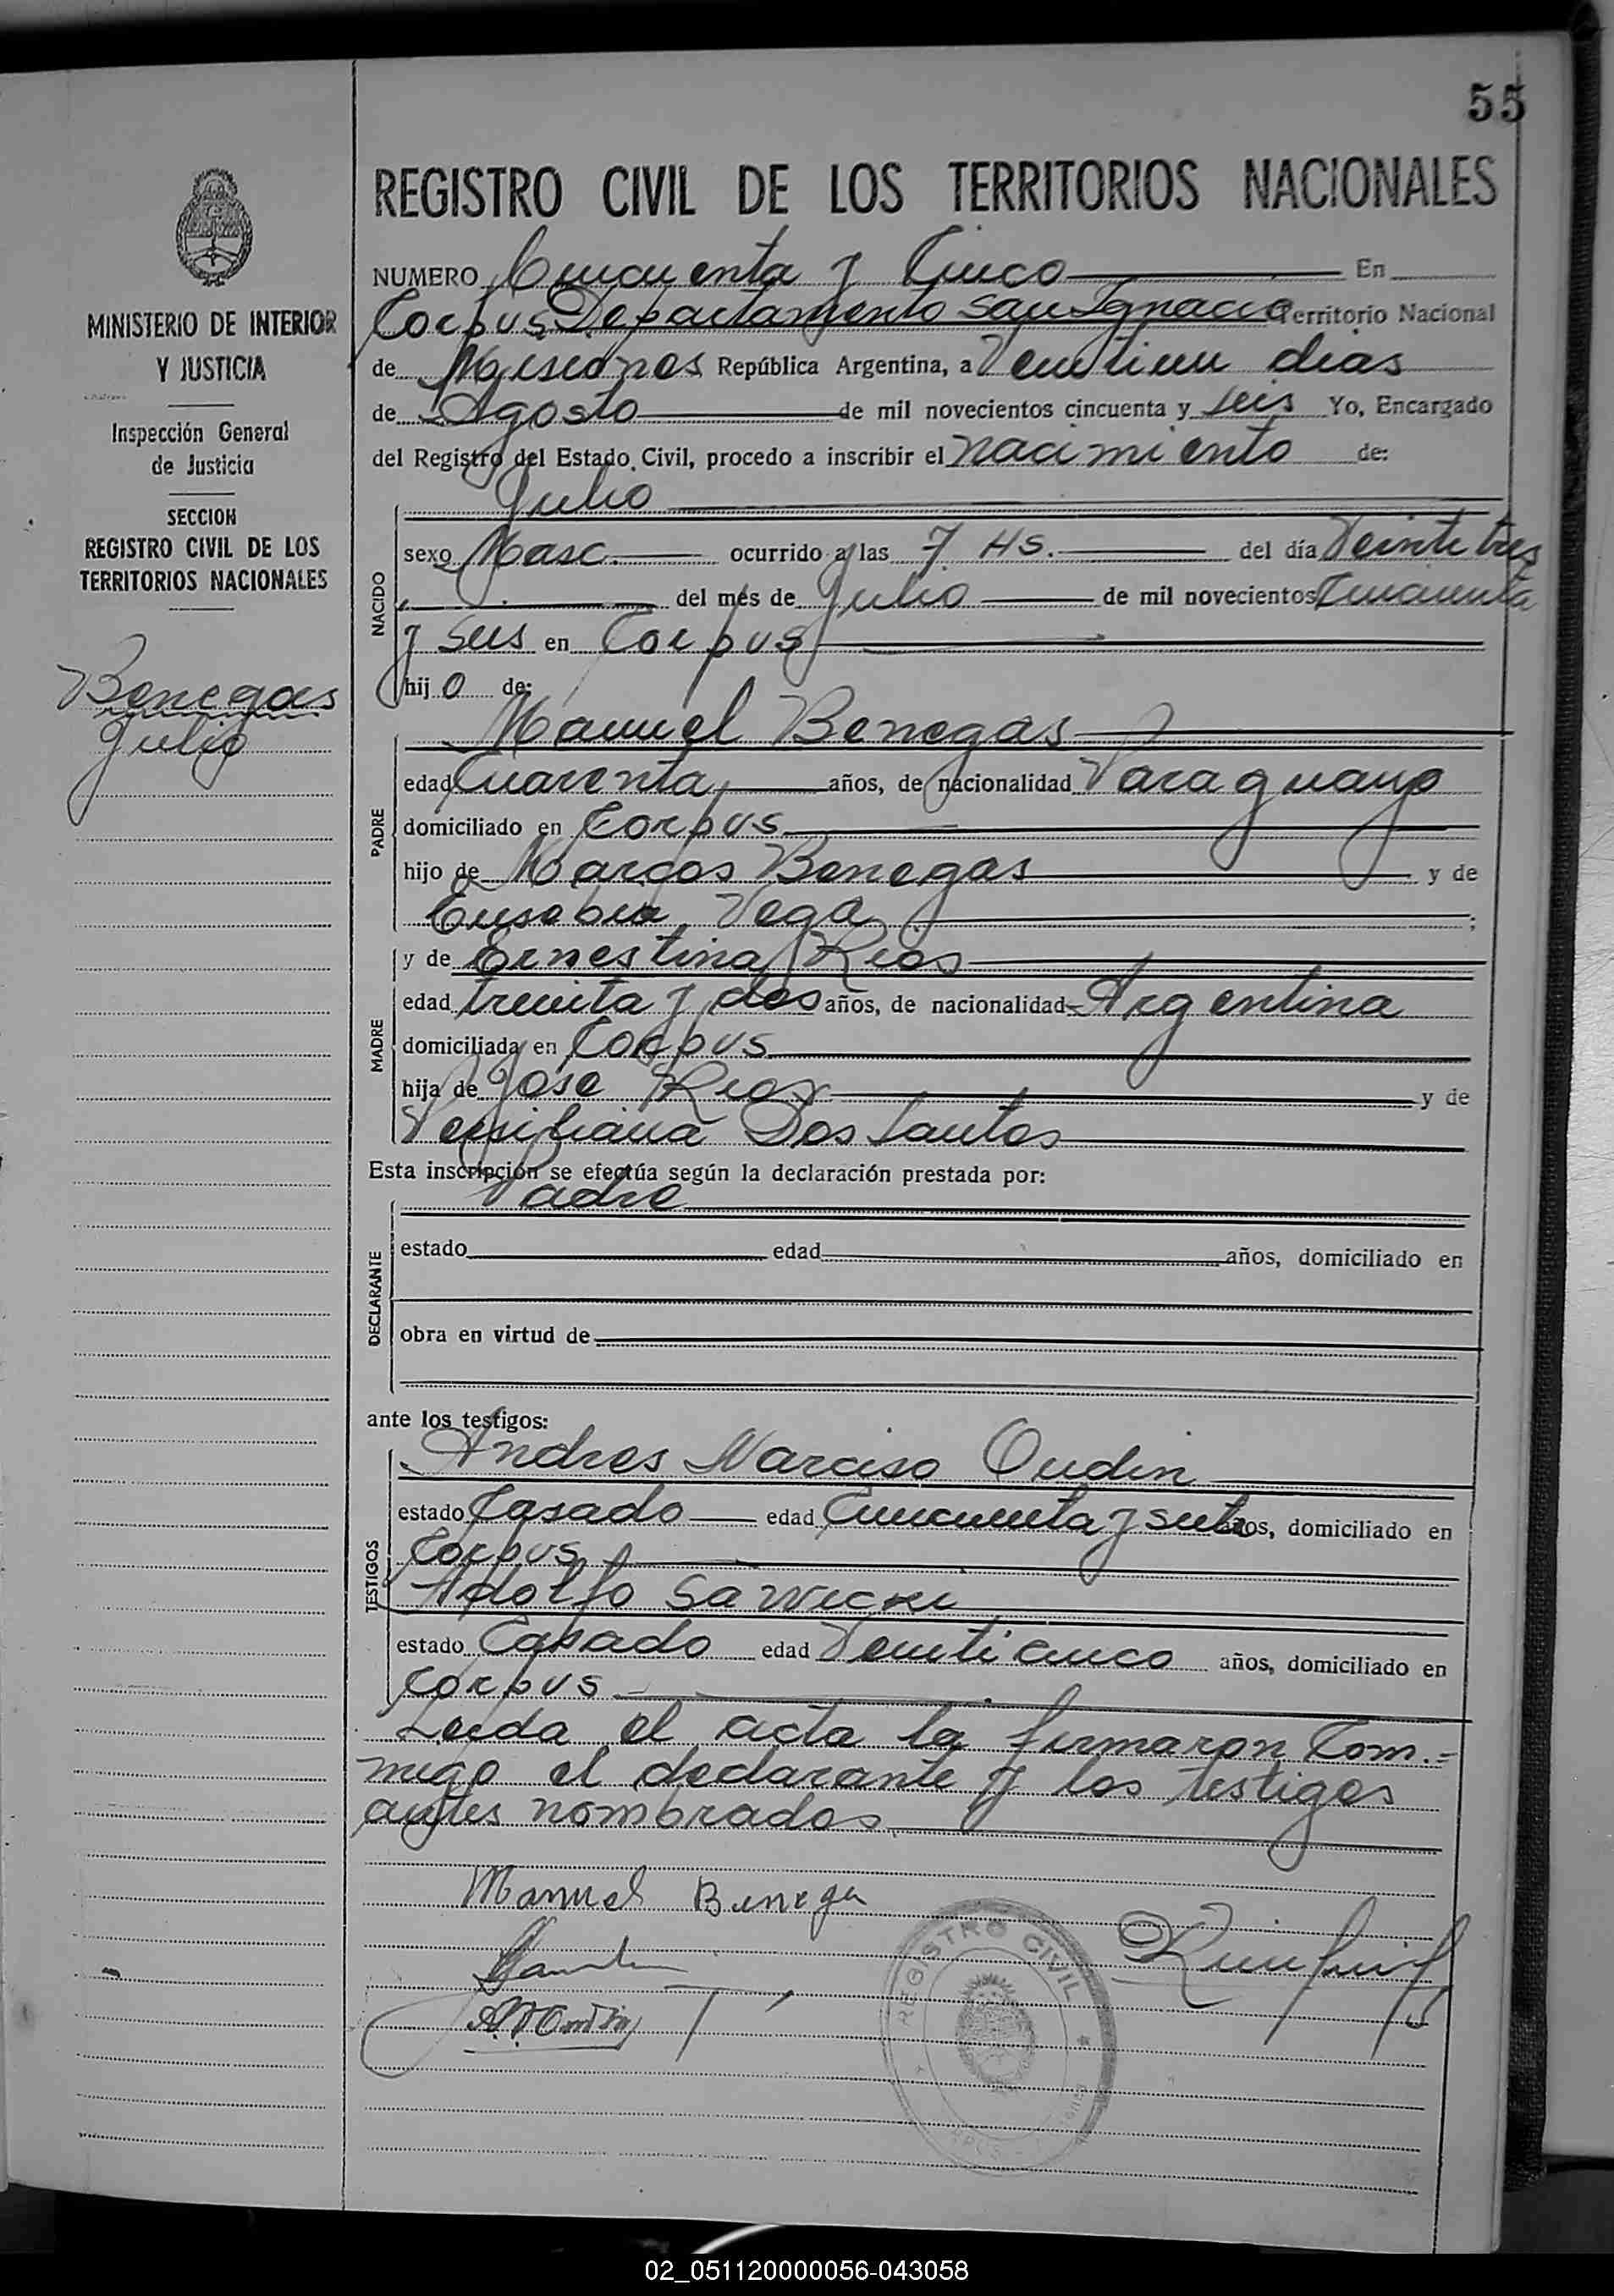 55
REGISTRO CIVIL DE LOS TERRITORIOS NACIONALES
MINISTERIO DE INTERIOR
Y JUSTICIA
Inspección General
de Justicia
SECCION
REGISTRO CIVIL DE LOS
TERRITORIOS NACIONALES
Benegas
Julio
NUMERO Cincuenta y Cinco En
Corpus Departamento San Ignacio Territorio Nacional
de Misiones República Argentina, a Veintiun dias
de Agosto de mil novecientos cincuenta y seis Yo, Encargado
del Registro del Estado Civil, procedo a inscribir el nacimiento de:
Julio
NACIDO
sexo Masc. ocurrido a las 7 HS. del día Veinte tres
del mes de Julio de mil novecientos Cincuenta
y seis en Corpus
hijo de:
PADRE
Manuel Benegas
edad Cuarenta años, de nacionalidad Paraguayo
domiciliado en Corpus
hijo de Marcos Benegas y de
Eusebia Vega ;
MADRE
y de Ernestina Rios
edad treinta y dos años, de nacionalidad Argentina
domiciliada en Corpus
hija de Jose Rios y de
Dos Santos
Esta inscripción se efectúa según la declaración prestada por:
DECLARANTE
Padre
estado edad años, domiciliado en
obra en virtud de
ante los testigos:
TESTIGOS
Andres Narciso Oudin
estado Casado edad Cincuenta y siete años, domiciliado en
Corpus
Adolfo Sawicki
estado Casado edad Veinticinco años, domiciliado en
Corpus
Leida el acta la firmaron Con.=
migo el declarante y los testigos
antes nombrados
Manuel Benega
REGISTRO CIVIL
02_051120000056-043058